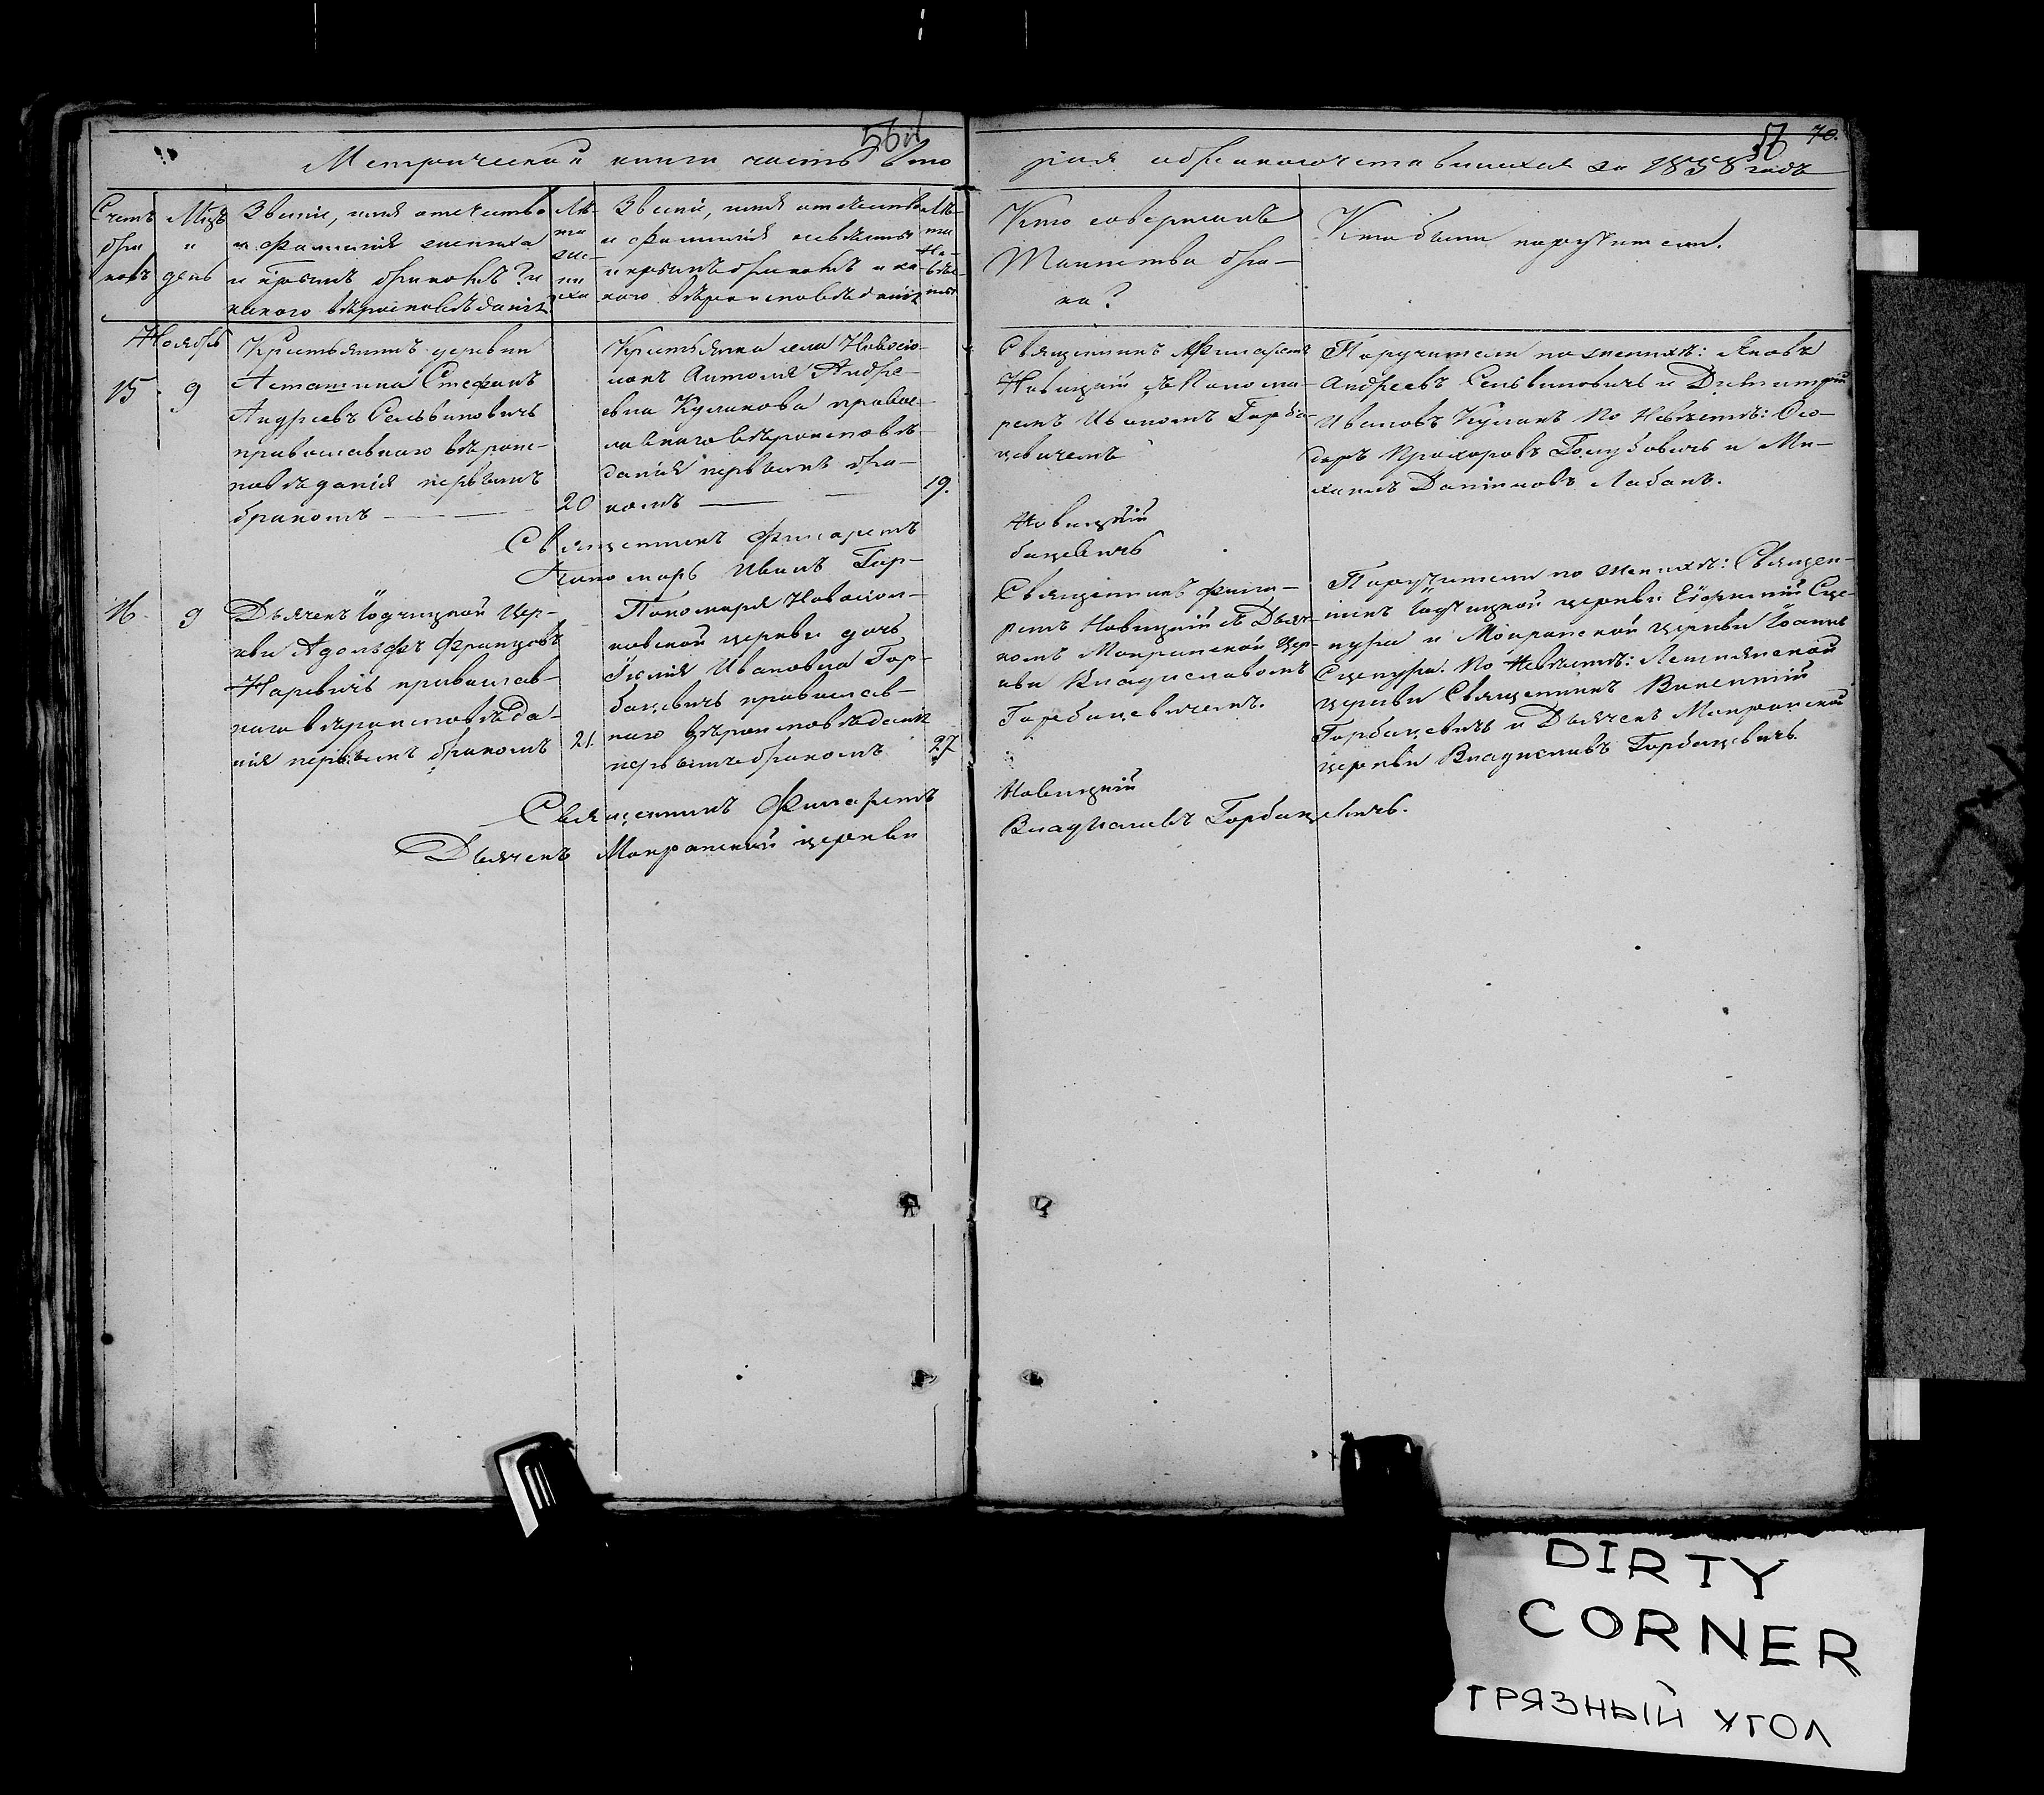 56об
57 70.
Метрической книги часть вто
рая о бракосочетавшихся за 1858 годъ
Счетъ
бра
ковъ
Мцъ
и
день
Званіе, имя отечество
и фамилія жениха
и коимъ бракомъ? и
какого вѣроисповѣданія
Лѣ-
та
же-
ни
ха
Званіе, имя отечество
и фамилія невѣсты
и коимъ бракомъ и ка-
кого вѣроисповѣданія
Лѣ-
та
Не-
вѣс-
ты
Кто совершалъ
Таинство бра-
ка?
Кто были поручители.
Ноябрь
15 9
Крестьянинъ деревни
Асташина Стефанъ
Андреевъ Сельвиновичь
православного вѣроис-
повѣданія первымъ
бракомъ — —
20
Крестьянка села Новосіо-
локъ Антоля Андре-
евна Кулакова правос-
лавного вѣроисповѣ-
данія первымъ бра-
комъ — —
19.
Священникъ Филаретъ
Новицкій съ Понома-
ремъ Иваномъ Горба-
цевичемъ
Поручители по женихѣ: Яковъ
Андреевъ Сельвиновичь и Дмитрій
Ивановъ Кулакъ По Невѣстѣ: Ѳео-
доръ Прохоровъ Голубовичь и Ми-
хаилъ Даніиловъ Лабанъ.
Священникъ Филаретъ
Новицкій
Пономарь Иванъ Гор-
бацевичь
16. 9
Дьячекъ Іодчицкой Цер-
кви Адольфъ Францовъ
Наревичь православ-
наго вѣроисповѣда-
нія первымъ бракомъ
21.
Пономаря Новосіол-
ковской церкви дочь
Ивановна Гор-
бацевичь православ-
наго вѣроисповѣданія
первымъ бракомъ
27
Священникъ Фила-
ретъ Новицкій съ Дьяч-
комъ Мокранской Цер-
кви Владиславомъ
Горбацевичемъ.
Поручители по Женихѣ: Священ-
никъ Іодчицкой церкви Сце-
пура и Мокранской церкви Іоаннъ
Сцепура. По Невѣстѣ:
церкви Священникъ Викентій
Горбацевичь и Дьячекъ Мокранской
церкви Владиславъ Горбацевичь.
Священникъ Филаретъ
Новицкій
Дьячекъ Мокранской церкви
Владиславъ Горбацевичь.
DIRTY
CORNER
ГРЯЗНЫЙ УГОЛ